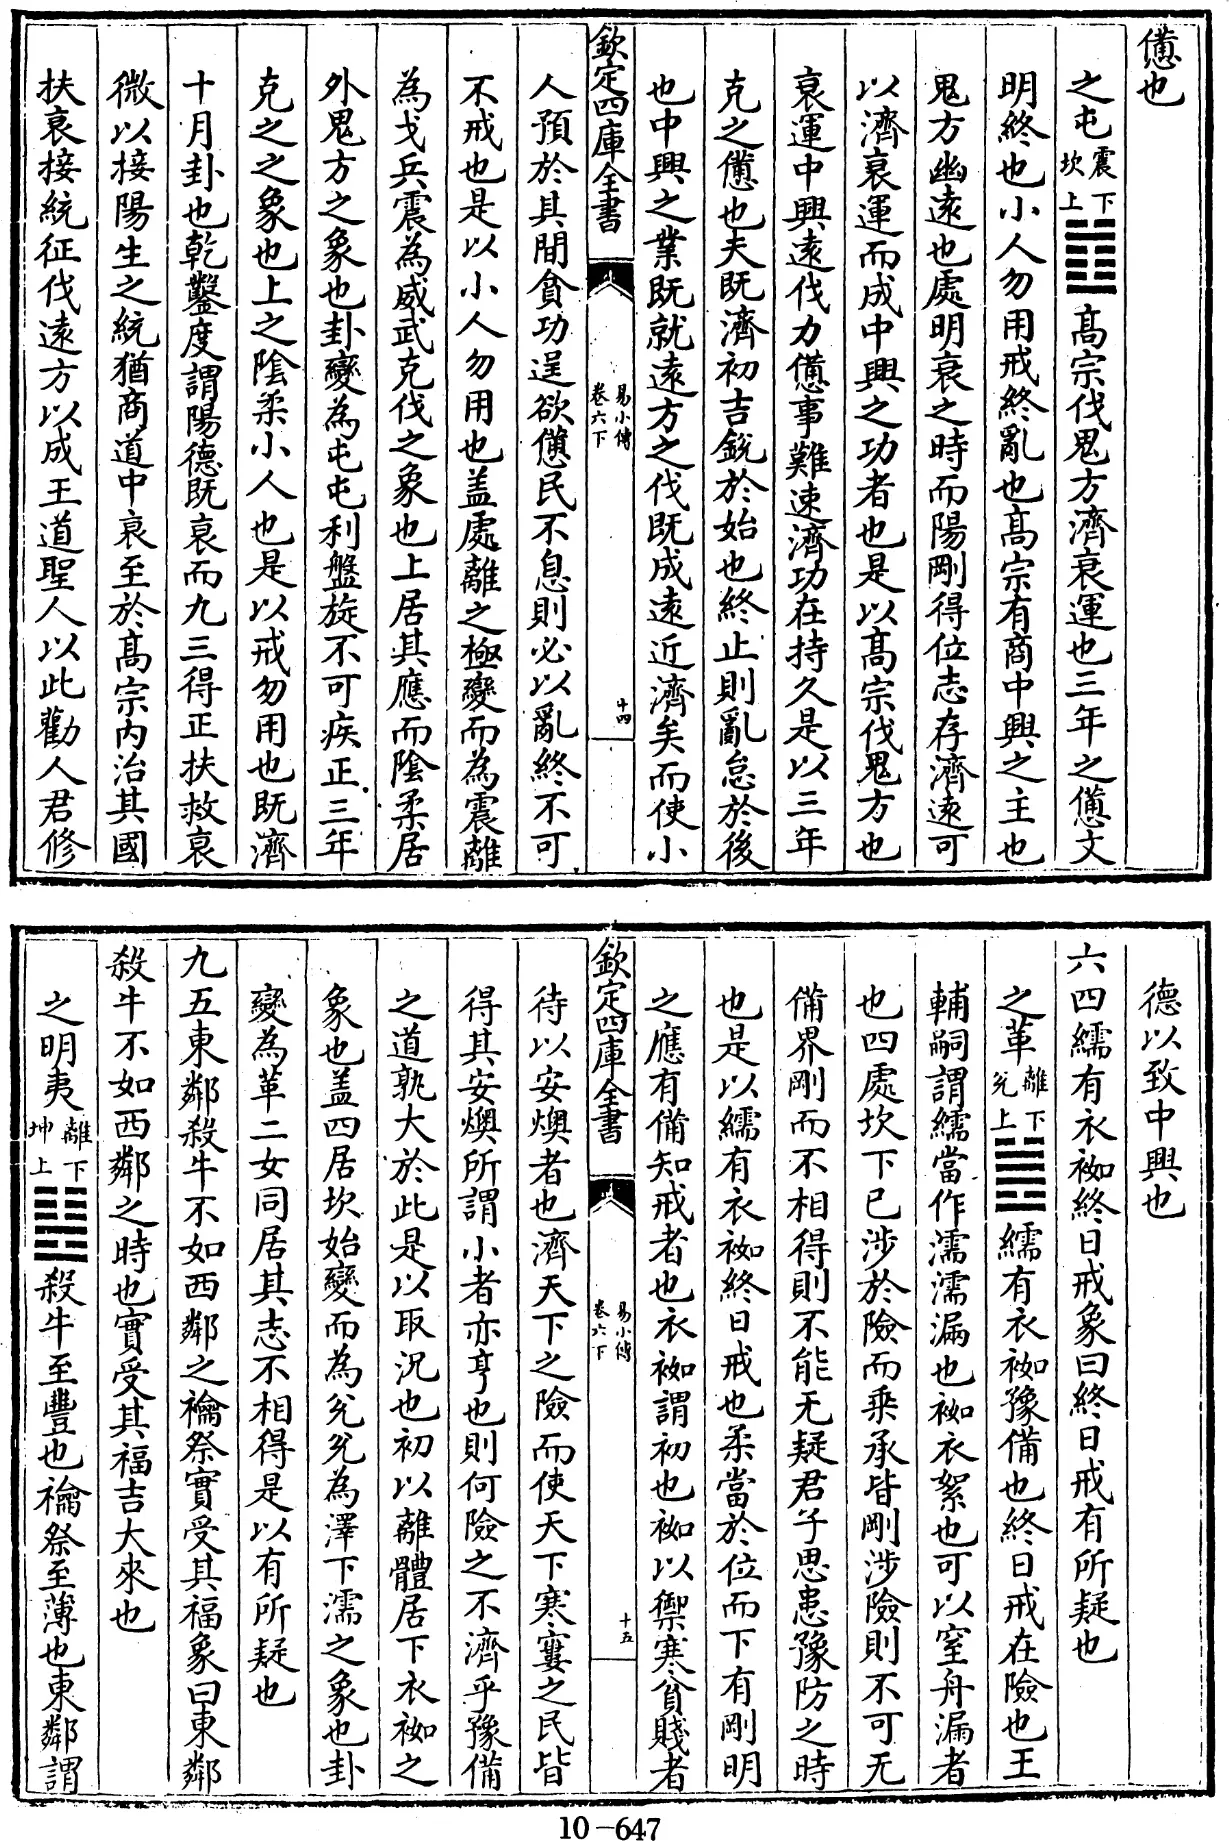 憊也
之屯震下坎上䷂高宗伐鬼方濟衰運也三年之憊文
明終也小人勿用戒終亂也高宗有商中興之主也
鬼方幽遠也處明衰之時而陽剛得位志存濟遠可
以濟衰運而成中興之功者也是以高宗伐鬼方也
衰運中興遠伐力憊事難速濟功在持久是以三年
克之憊也夫既濟初吉銳於始也終止則亂怠於後
也中興之業既就遠方之伐既成遠近濟矣而使小
欽定四庫全書
易小傳
卷六下
十四
人預於其間貪功逞欲憊民不息則必以亂終不可
不戒也是以小人勿用也盖處離之極變而為震離
為戈兵震為威武克伐之象也上居其應而陰柔居
外鬼方之象也卦變為屯屯利盤旋不可疾正三年
克之之象也上之陰柔小人也是以戒勿用也既濟
十月卦也乾鑿度謂陽德既衰而九三得正扶救衰
微以接陽生之統猶商道中衰至於高宗内治其國
扶衰接統征伐遠方以成王道聖人以此勸人君修
德以致中興也
六四繻有衣袽終日戒象曰終日戒有所疑也
之革離下兊上䷰繻有衣袽豫備也終日戒在險也王
輔嗣謂繻當作濡濡漏也袽衣絮也可以窒舟漏者
也四處坎下已涉於險而乘承皆剛涉險則不可无
備界剛而不相得則不能无疑君子思患豫防之時
也是以繻有衣袽終日戒也柔當於位而下有剛明
之應有備知戒者也衣袽謂初也袽以禦寒貧賤者
欽定四庫全書
易小傳
卷六下
十五
待以安燠者也濟天下之險而使天下寒窶之民皆
得其安燠所謂小者亦亨也則何險之不濟乎豫備
之道孰大於此是以取況也初以離體居下衣袽之
象也盖四居坎始變而為兊兊為澤下濡之象也卦
變為革二女同居其志不相得是以有所疑也
九五東鄰殺牛不如西鄰之禴祭實受其福象曰東鄰
殺牛不如西鄰之時也實受其福吉大來也
之明夷離下坤上䷣殺牛至豐也禴祭至薄也東鄰謂
10-647